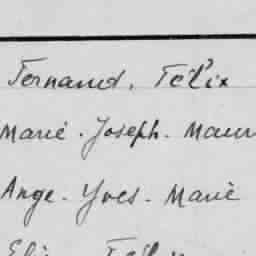 Fernand. Félix
Marie. Joseph. Maur
Ange. Yves. Marie